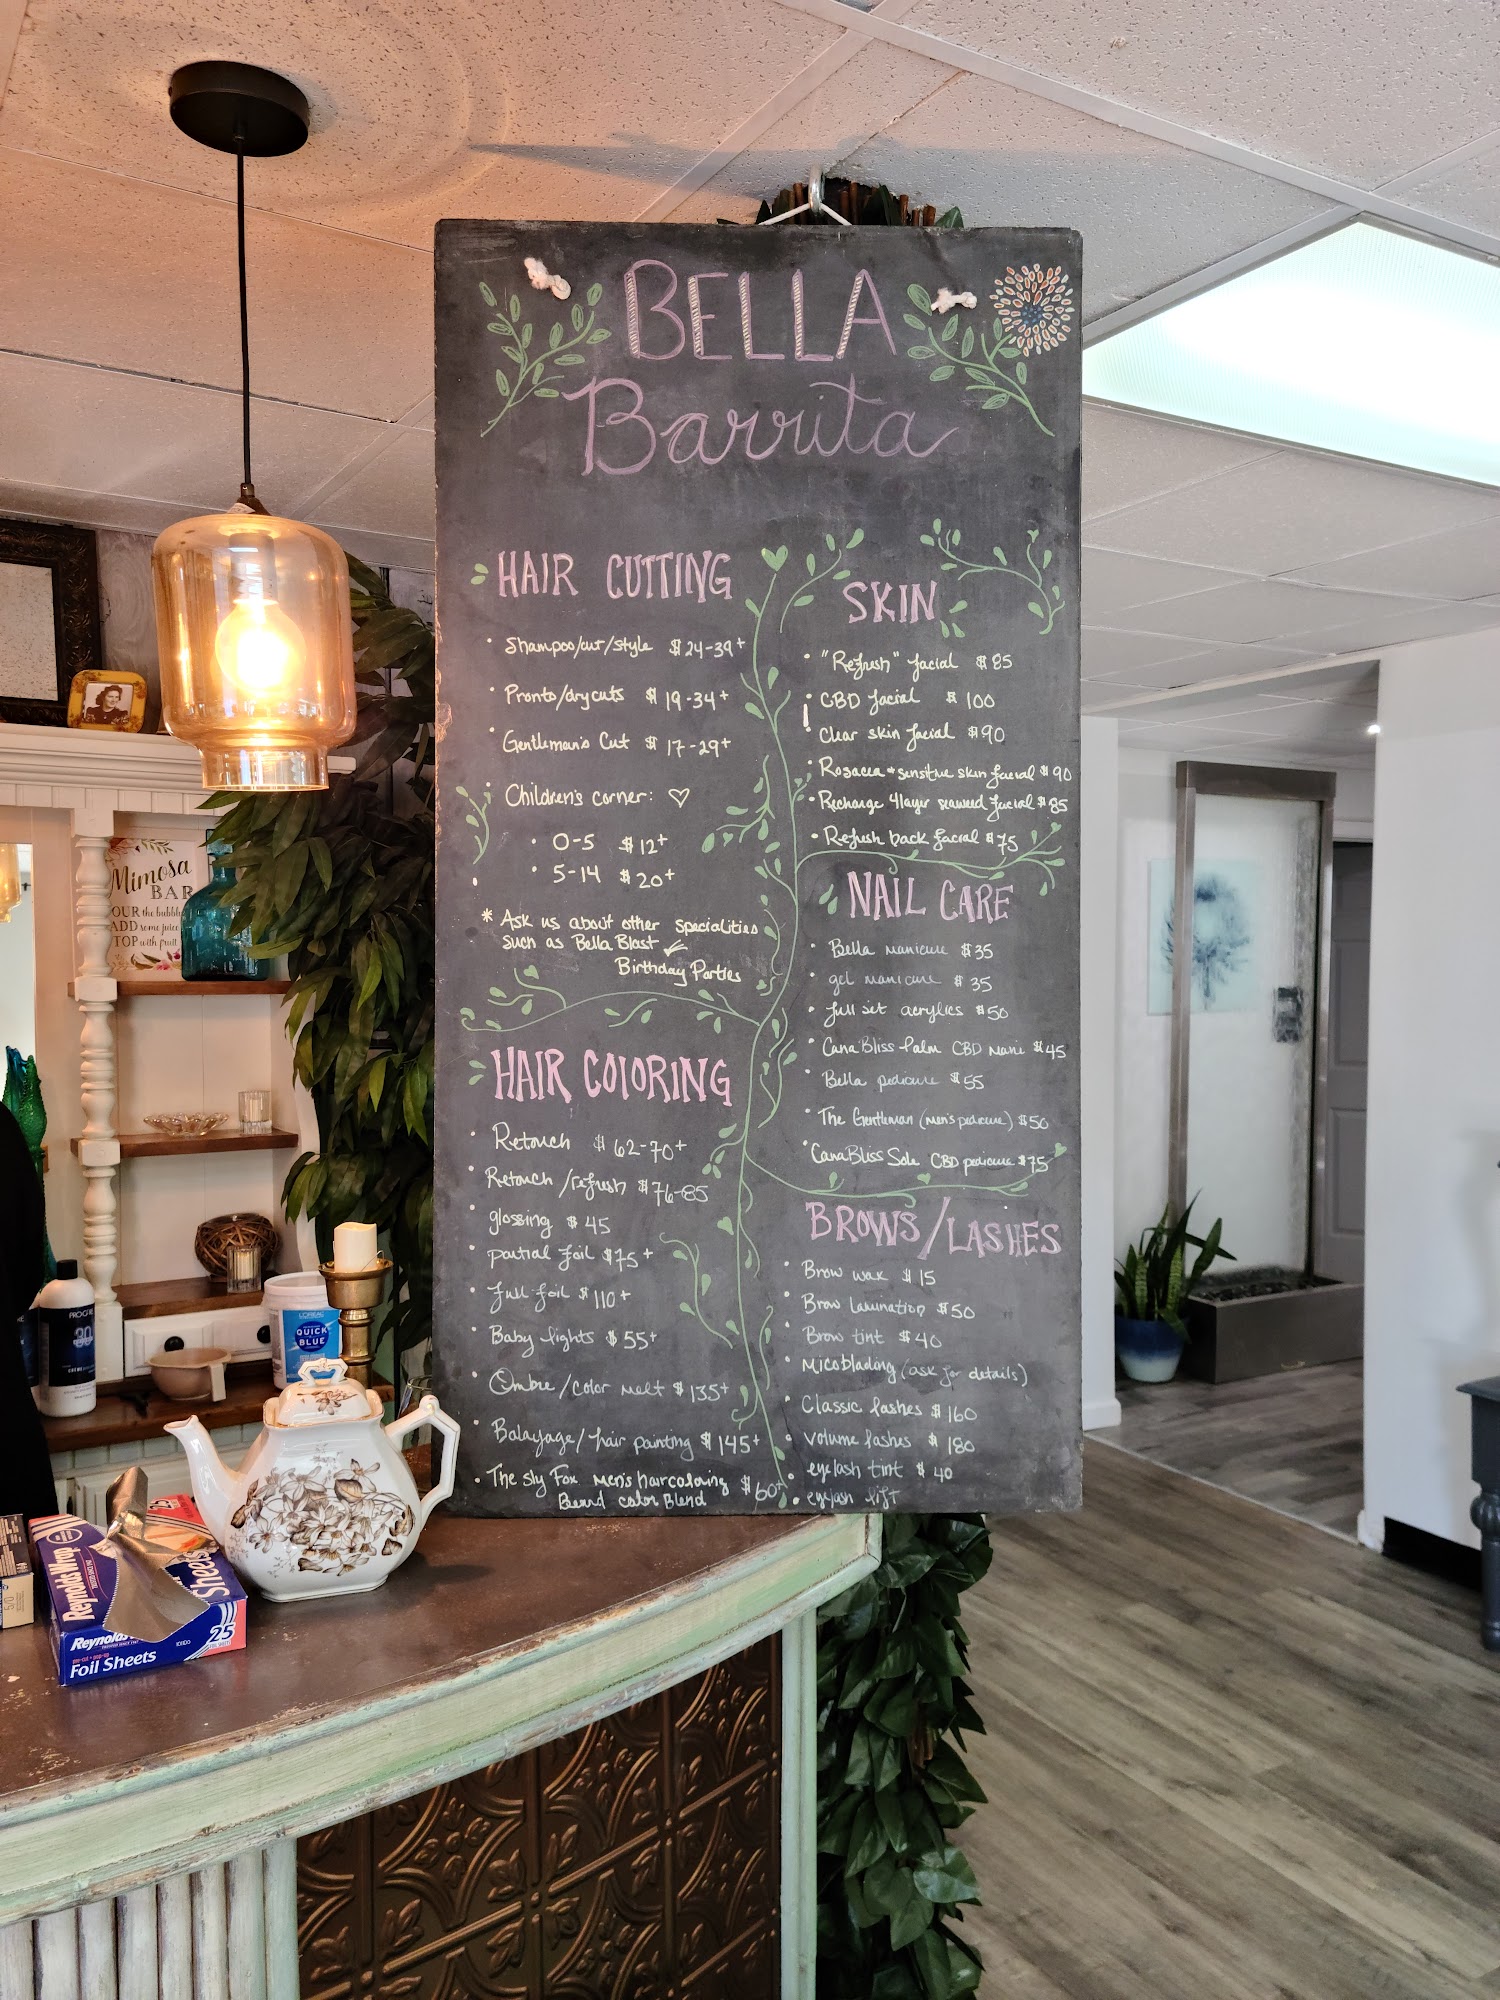 BELLA
Barrita
HAIR CUTTING
• Shampoo/cut/style $24-39+
• Pronto/dry cuts $19-34+
• Gentleman's Cut $17-29+
Children's corner: ♡
• 0-5 $12+
• 5-14 $20+
* Ask us about other specialities
such as Bella Blast
Birthday Parties
HAIR COLORING
• Retouch $62-70+
• Retouch/refresh $76-85
• glossing $45
• partial foil $75+
• full foil $110+
• Baby lights $55+
• Ombre/Color melt $135+
• Balayage/hair painting $145+
• The Sly Fox Men's haircoloring $60+
Beard color Blend
SKIN
• "Refresh" facial $85
• CBD facial $100
clear skin facial $90
• Rosacea + sensitive skin facial $90
• Recharge 4layer seaweed facial $85
• Refresh back facial $75
NAIL CARE
• Bella manicure $35
• gel manicure $35
• full set acrylics $50
• CanaBliss Palm CBD Mani $45
• Bella pedicure $55
• The Gentleman (men's pedicure) $50
• CanaBliss Sole CBD pedicure $75
BROWS/LASHES
• Brow wax $15
• Brow lamination $50
• Brow tint $40
• Micoblading (ask for details)
• Classic lashes $160
• volume lashes $180
• eyelash tint $40
• eyelash lift
Mimosa
BAR
OUR the bubbly
ADD some juice
TOP with fruit
PROC
30
L'OREAL
QUICK
BLUE
Reynolds Wrap
Sheets
Reynolds
25
Foil Sheets